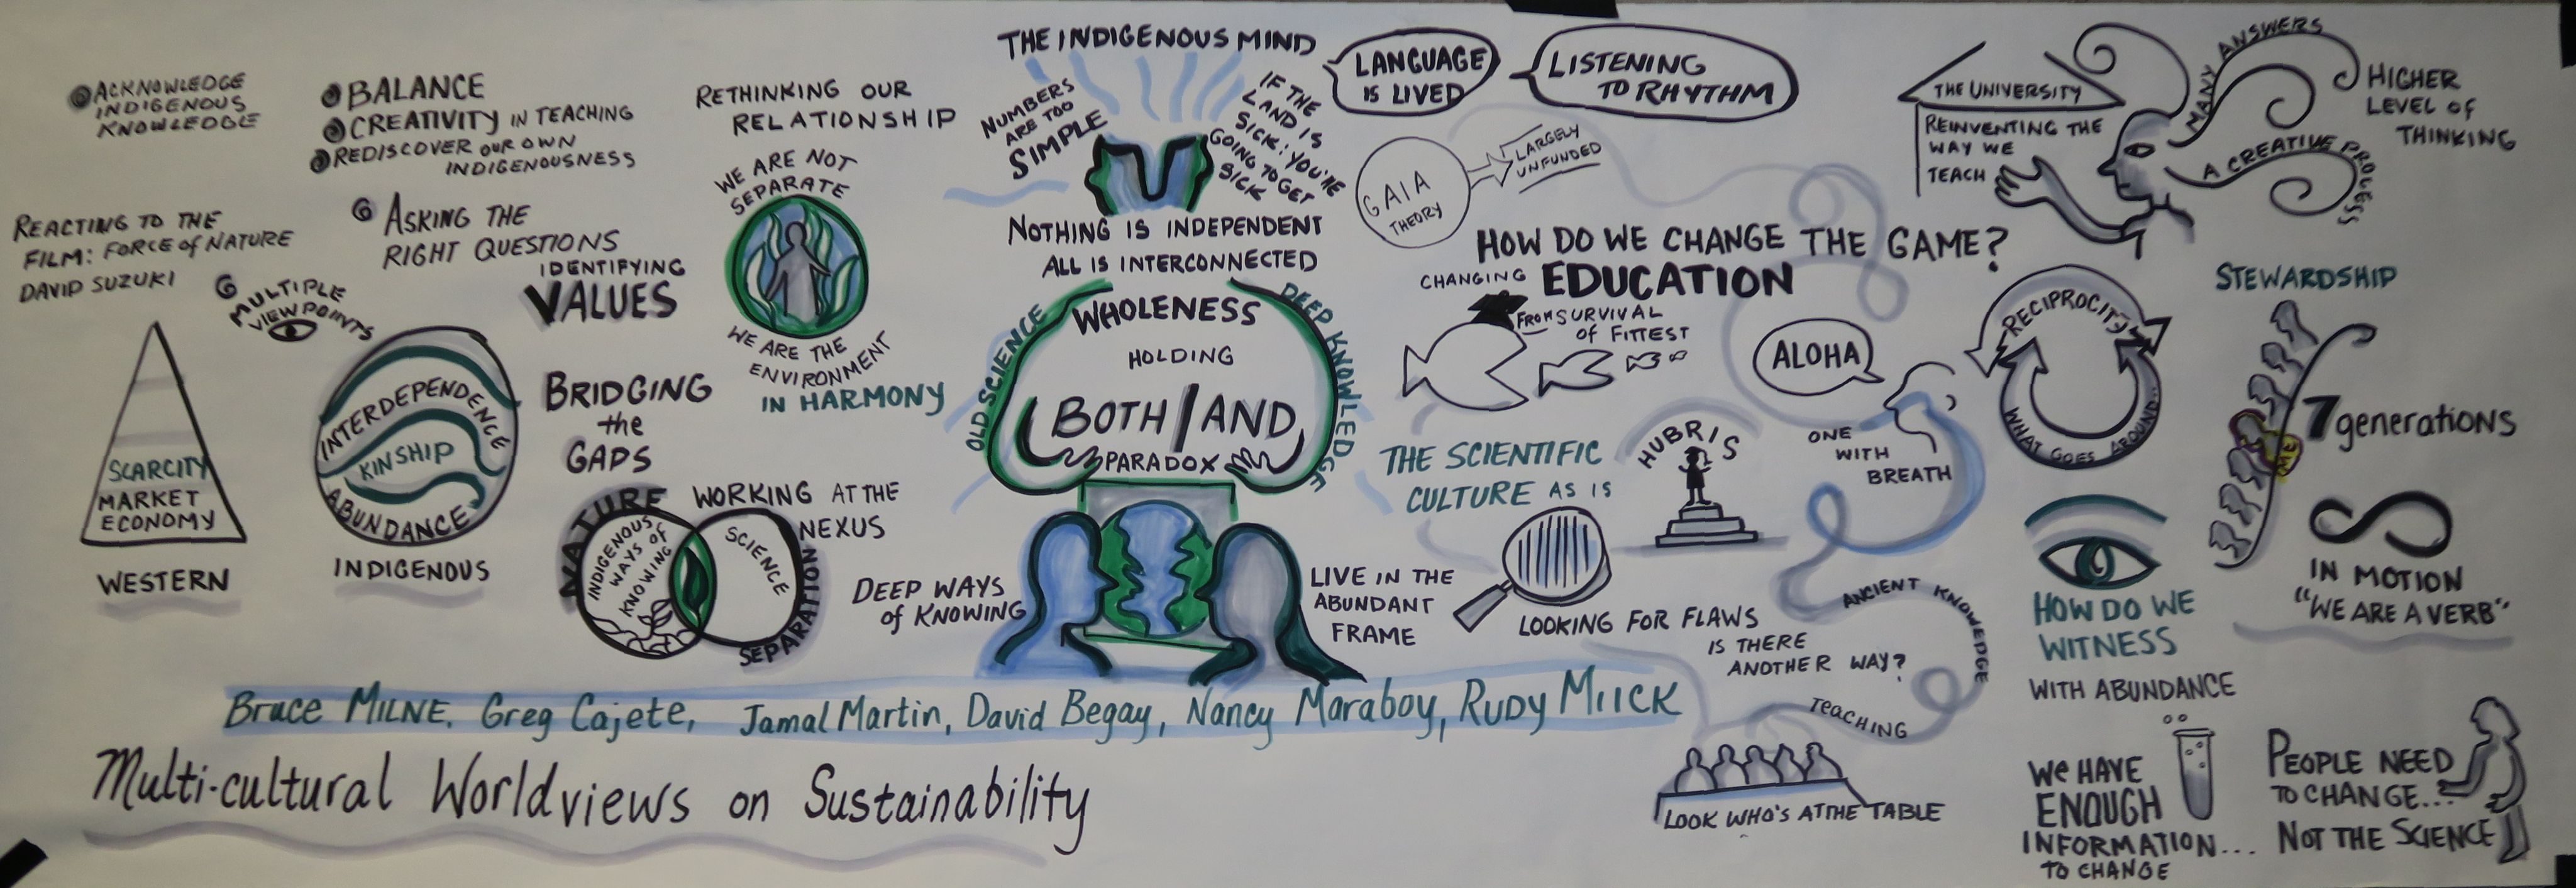 ACKNOWLEDGE
INDIGENOUS
KNOWLEDGE
BALANCE
CREATIVITY IN TEACHING
REDISCOVER OUR OWN
INDIGENOUSNESS
REACTING TO THE
FILM: FORCE of NATURE
DAVID SUZUKI
ASKING THE
RIGHT QUESTIONS
MULTIPLE
VIEWPOINTS
IDENTIFYING
VALUES
SCARCITY
MARKET
ECONOMY
WESTERN
INTERDEPENDENCE
KINSHIP
ABUNDANCE
INDIGENOUS
BRIDGING
the
GAPS
RETHINKING OUR
RELATIONSHIP
WE ARE NOT
SEPARATE
WE ARE THE
ENVIRONMENT
IN HARMONY
NATURE
INDIGENOUS
WAYS of
KNOWING
WORKING AT THE
NEXUS
SCIENCE
SEPARATION
THE INDIGENOUS MIND
NUMBERS
ARE TOO
SIMPLE
IF THE
LAND IS
SICK: YOU'RE
GOING TO GET
SICK
NOTHING IS INDEPENDENT
ALL IS INTERCONNECTED
OLD SCIENCE
DEEP KNOWLEDGE
WHOLENESS
HOLDING
BOTH/AND
PARADOX
DEEP WAYS
of KNOWING
LIVE IN THE
ABUNDANT
FRAME
LANGUAGE
IS LIVED
LISTENING
TO RHYTHM
GAIA
THEORY
LARGELY
UNFUNDED
HOW DO WE CHANGE THE GAME?
CHANGING EDUCATION
FROM SURVIVAL
of FITTEST
THE SCIENTIFIC
CULTURE AS IS
HUBRIS
LOOKING FOR FLAWS
IS THERE
ANOTHER WAY?
ALOHA
ONE
WITH
BREATH
ANCIENT KNOWEDGE
TEACHING
LOOK WHO'S AT THE TABLE
THE UNIVERSITY
REINVENTING THE
WAY WE
TEACH
MANY ANSWERS
A CREATIVE PROCESS
HIGHER
LEVEL of
THINKING
RECIPROCITY
WHAT GOES AROUND...
STEWARDSHIP
7 generations
ME
HOW DO WE
WITNESS
WITH ABUNDANCE
IN MOTION
"WE ARE A VERB"
WE HAVE
ENOUGH
INFORMATION...
TO CHANGE
PEOPLE NEED
TO CHANGE...
NOT THE SCIENCE
Bruce MILNE. Greg Cajete, Jamal Martin, David Begay, Nancy Maraboy, RUDY MIICK
Multi-cultural Worldviews on Sustainability